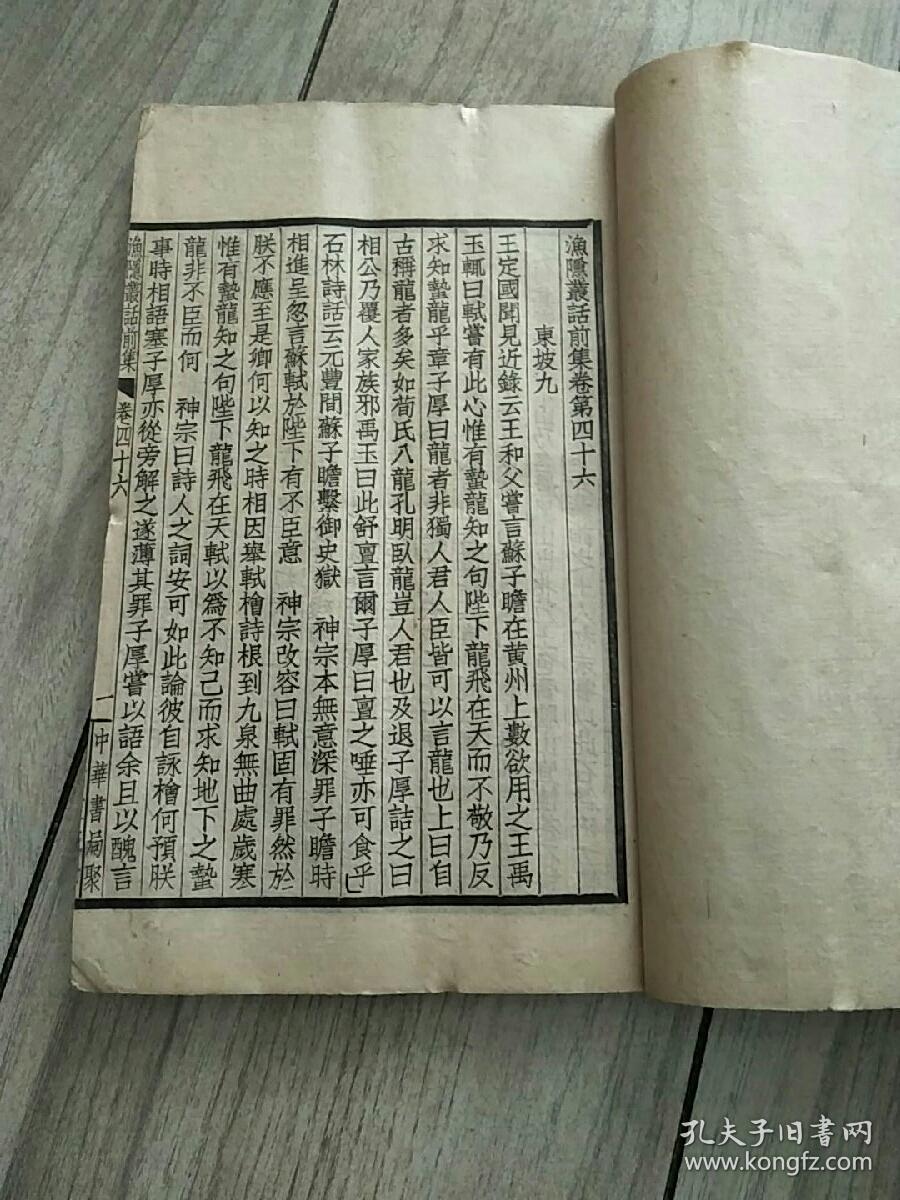 漁隱叢話前集卷第四十六
東坡九
王定國聞見近錄云王和父嘗言蘇子瞻在黃州上數欲用之王禹
玉輒曰軾嘗有此心惟有蟄龍知之句陛下龍飛在天而不敬乃反
求知蟄龍乎章子厚曰龍者非獨人君人臣皆可以言龍也上曰自
古稱龍者多矣如荀氏八龍孔明臥龍豈人君也及退子厚詰之曰
相公乃覆人家族邪禹玉曰此舒亶言爾子厚曰亶之唾亦可食乎
石林詩話云元豐間蘇子瞻繫御史獄 神宗本無意深罪子瞻時
相進呈忽言蘇軾於陛下有不臣意 神宗改容曰軾固有罪然於
朕不應至是卿何以知之時相因舉軾檜詩根到九泉無曲處歲寒
惟有蟄龍知之句陛下龍飛在天軾以為不知己而求知地下之蟄
龍非不臣而何 神宗曰詩人之詞安可如此論彼自詠檜何預朕
事時相語塞子厚亦從旁解之遂薄其罪子厚嘗以語余且以醜言
漁隱叢話前集 卷四十六 一 中華書局聚
孔夫子旧书网
www.kongfz.com